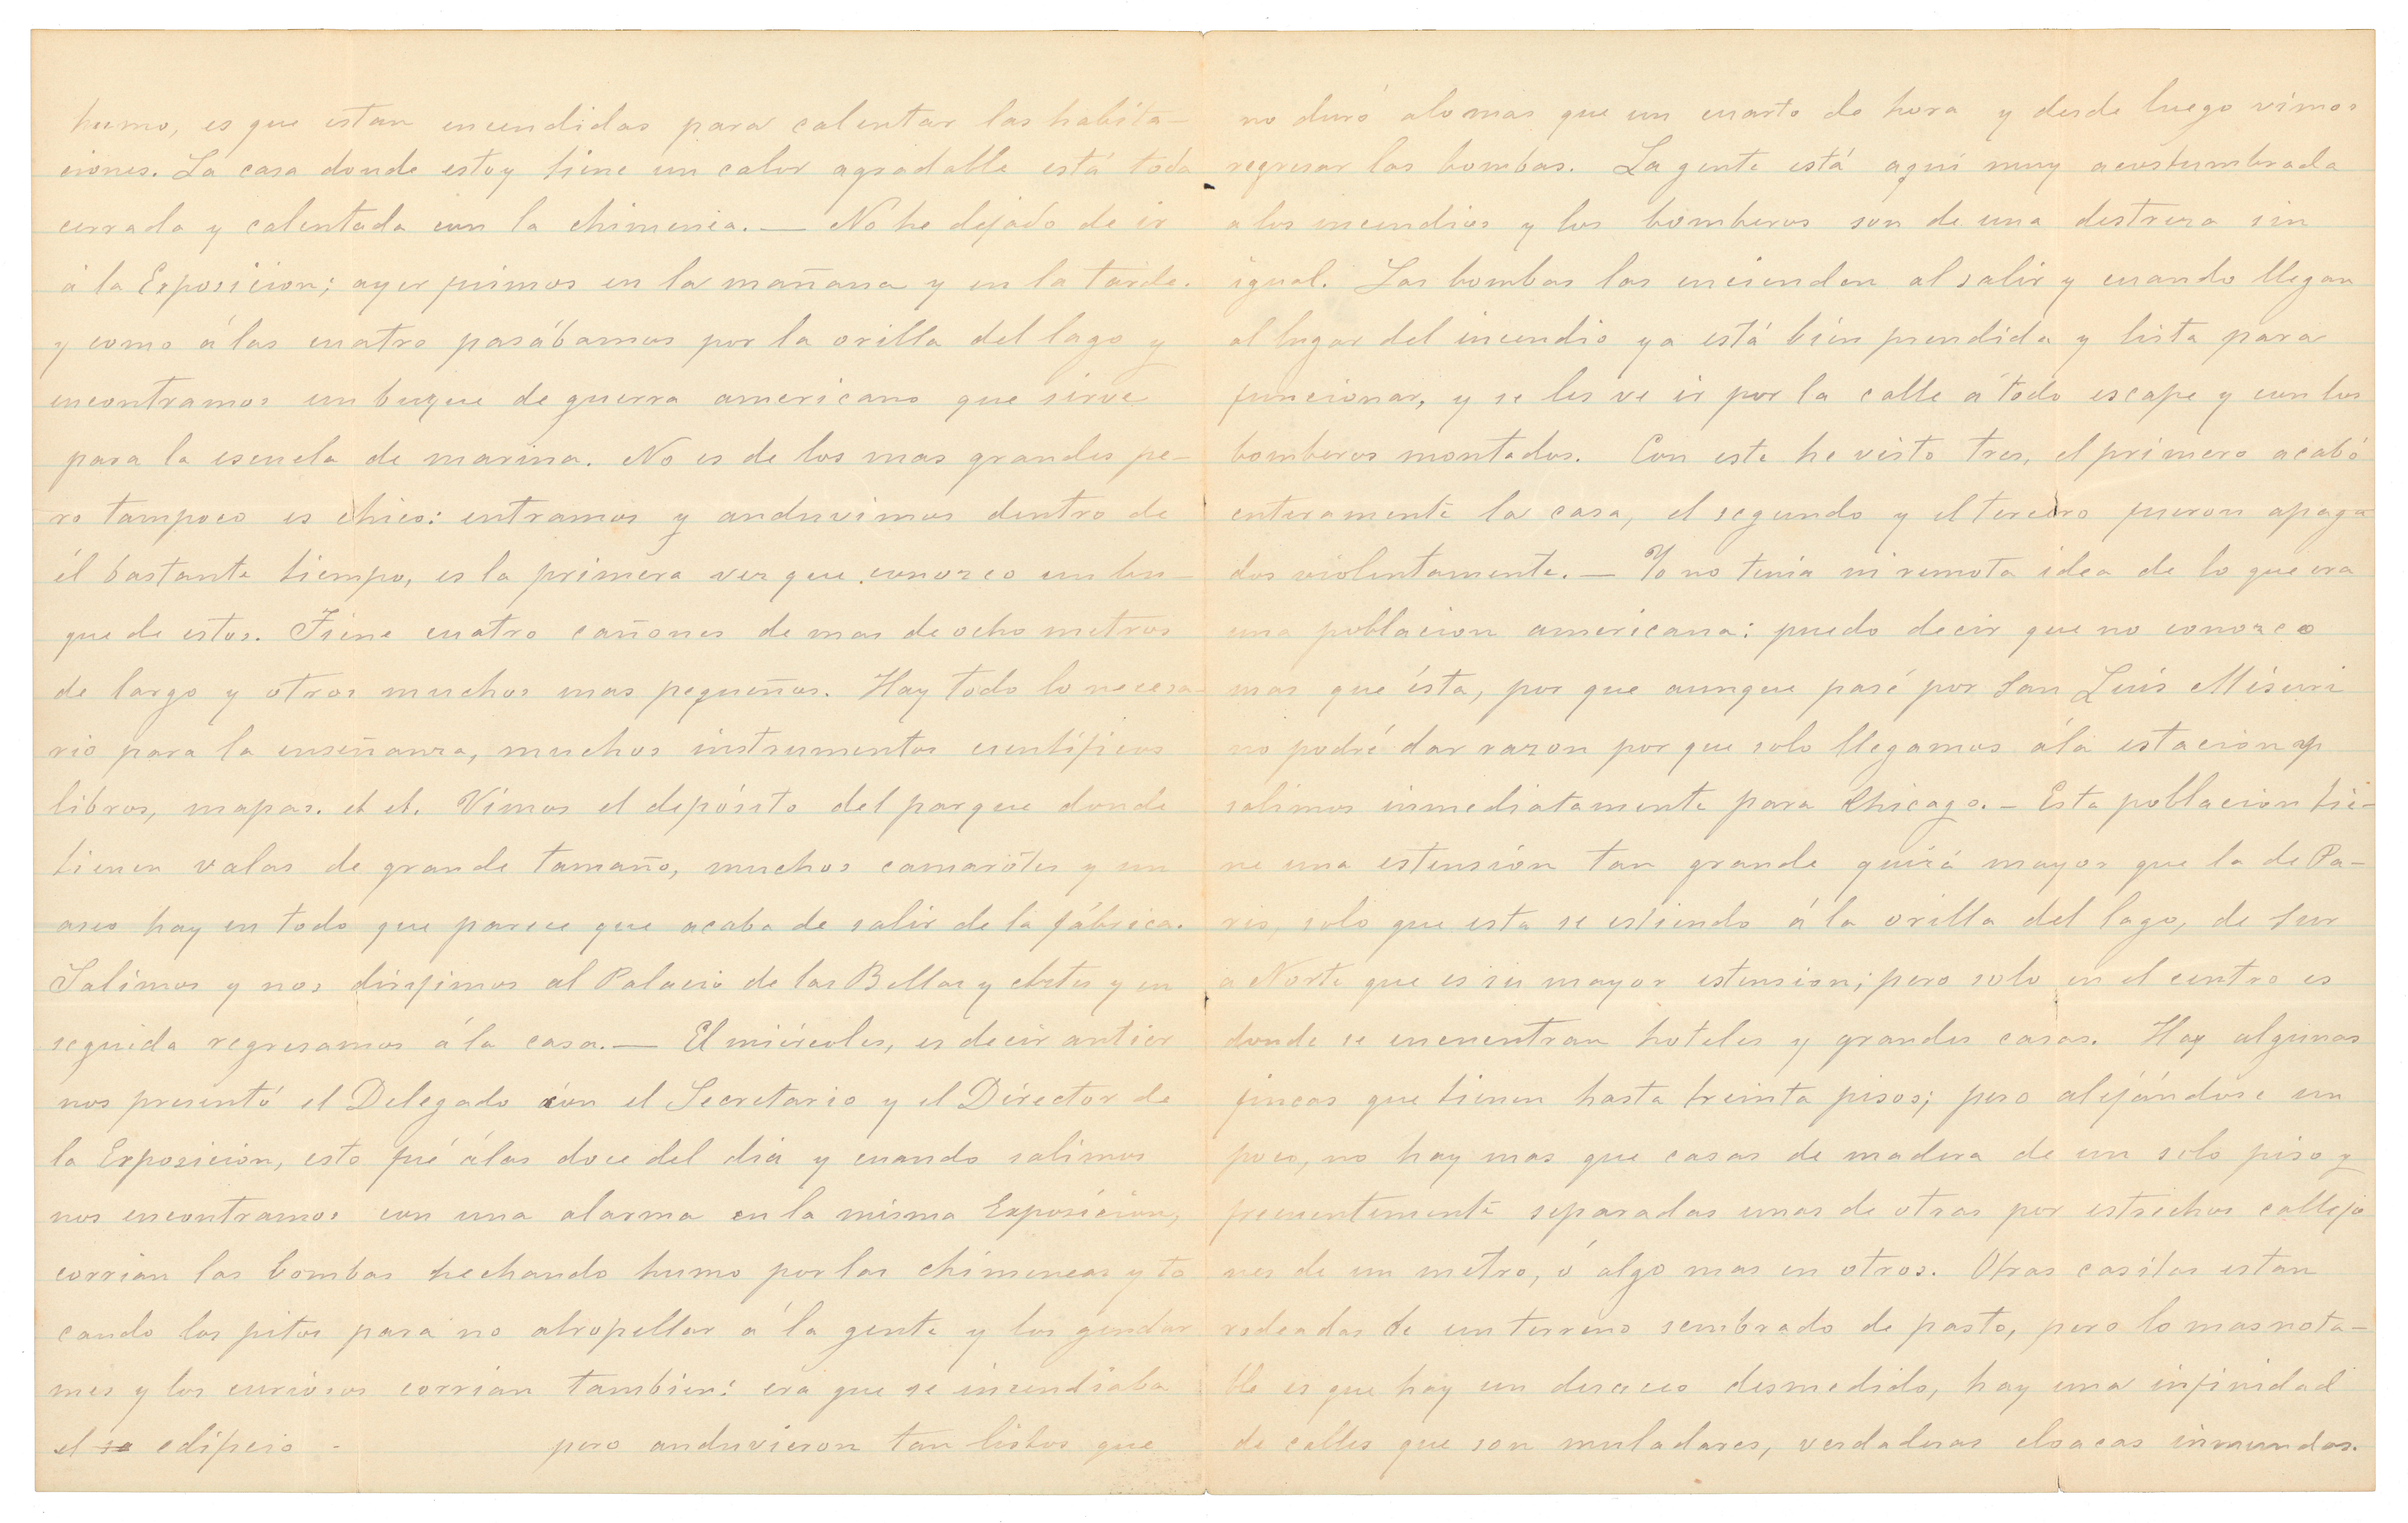 humo, es que estan encendidas para calentar las habita-
ciones. La casa donde estoy tiene un calor agradable está toda
cerrada y calentada con la chimenea. — No he dejado de ir
á la Exposicion; ayer fuimos en la mañana y en la tarde.
y como á las cuatro pasábamos por la orilla del lago y
encontramos un buque de guerra americano que sirve
para la escuela de marina. No es de los mas grandes pe-
ro tampoco es chico: entramos y anduvimos dentro de
él bastante tiempo, es la primera vez que conozco un bu-
que de estos. Tiene cuatro cañones de mas de ocho metros
de largo y otros muchos mas pequeños. Hay todo lo necesa-
rio para la enseñanza, muchos instrumentos cientificos
libros, mapas. et et. Vimos el depósito del parque donde
tienen valas de grande tamaño, muchos camarótes y un
aseo hay en todo que parece que acaba de salir de la fábrica.
Salimos y nos dirijimos al Palacio de las Bellas y Artes y en
seguida regresamos á la casa. — El miércoles, es decir antier
nos presentó el Delegado con el Secretario y el Director de
la Exposicion, esto fué á las doce del dia y cuando salimos
nos encontramos con una alarma en la misma Exposicion,
corrian las bombas hechando humo por las chimeneas y to
cando los pitos para no atropellar á la gente y los gendar
mes y los curiosos corrian tambien: era que se incendiaba
el se edificio - pero anduvieron tan listos que
no duró alo mas que un cuarto de hora y desde luego vimos
regresar las bombas. La gente está aqui muy acostumbrada
a los incendios y los bomberos son de una destreza sin
igual. Las bombas las encienden al salir y cuando llegan
al lugar del incendio ya está bien prendida y lista para
funcionar, y se les ve ir por la calle a todo escape y con los
bomberos montados. Con este he visto tres, el primero acabó
enteramente la casa, el segundo y el tercero fueron apaga
dos violentamente. — Yo no tenia ni remota idea de lo que era
una poblacion americana: puedo decir que no conozco
mas que ésta, por que aunque pasé por San Luis Misuri
no podré dar razon por que solo llegamos á la estacion y
salimos inmediatamente para Chicago. — Esta poblacion tie-
ne una estensión tan grande quizá mayor que la de Pa-
ris, solo que esta se estiende á la orilla del lago, de Sur
a Norte que es su mayor estension; pero solo en el centro es
donde se encuentran hoteles y grandes casas. Hay algunas
fincas que tienen hasta treinta pisos; pero alejándose un
poco, no hay mas que casas de madera de un solo piso y
frecuentemente separadas unas de otras por estrechos callejo
nes de un metro, ó algo mas en otros. Otras casitas estan
rodeadas de un terreno sembrado de pasto, pero lo mas nota-
ble es que hay un desaseo desmedido, hay una infinidad
de calles que son muladares, verdaderas cloacas inmundas.